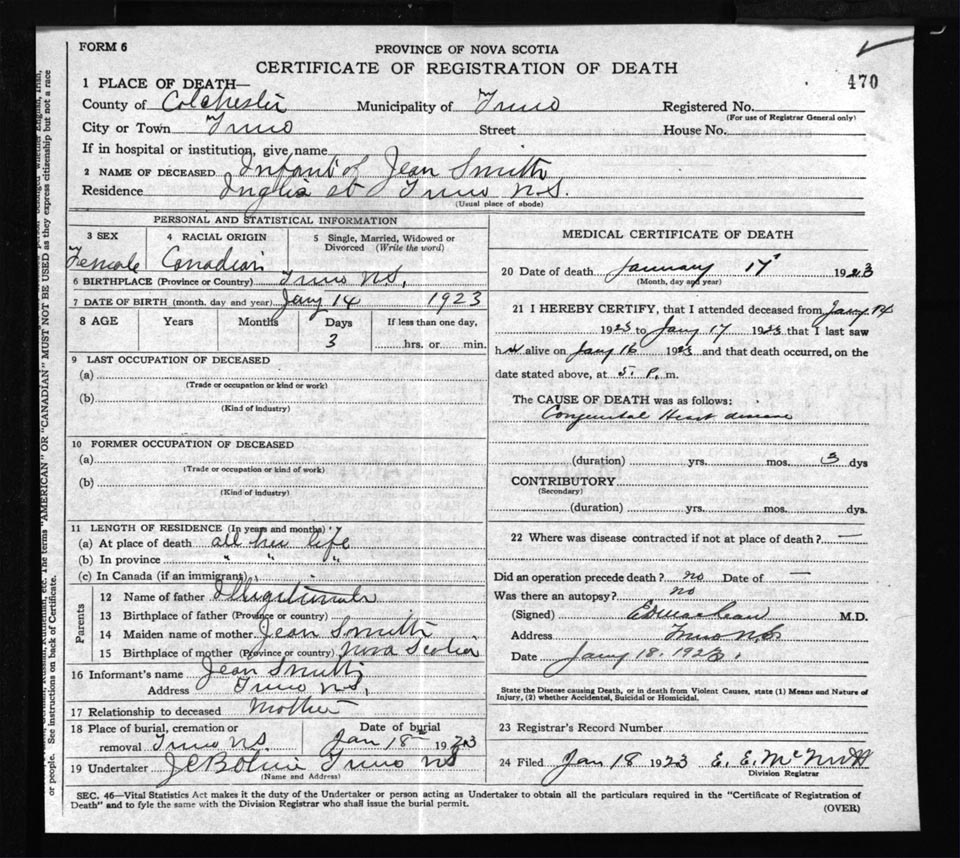 FORM 6
PROVINCE OF NOVA SCOTIA
CERTIFICATE OF REGISTRATION OF DEATH
470
1 PLACE OF DEATH—
County of Colchester Municipality of Truro Registered No.
(For use of Registrar General only)
City or Town Truro Street House No.
If in hospital or institution, give name
2 NAME OF DECEASED Infant of Jean Smith
Residence Inglis st Truro N.S.
(Usual place of abode)
PERSONAL AND STATISTICAL INFORMATION
3 SEX 4 RACIAL ORIGIN 5 Single, Married, Widowed or
Divorced (Write the word)
Female Canadian
6 BIRTHPLACE (Province or Country) Truro N.S.
7 DATE OF BIRTH (month, day and year) Jany 14 1923
8 AGE Years Months Days If less than one day,
3 hrs. or min.
9 LAST OCCUPATION OF DECEASED
(a)
(Trade or occupation or kind or work)
(b)
(Kind of industry)
10 FORMER OCCUPATION OF DECEASED
(a)
(Trade or occupation or kind of work)
(b)
(Kind of industry)
11 LENGTH OF RESIDENCE (In years and months)
(a) At place of death all her life
(b) In province " " "
(c) In Canada (if an immigrant)
Parents
12 Name of father Illegitimate
13 Birthplace of father (Province or country)
14 Maiden name of mother Jean Smith
15 Birthplace of mother (Province or country) Nova Scotia
16 Informant's name Jean Smith
Address Truro N.S.
17 Relationship to deceased Mother
18 Place of burial, cremation or Date of burial
removal Truro N.S. Jan 18th 1923
19 Undertaker Truro N.S.
(Name and Address)
MEDICAL CERTIFICATE OF DEATH
20 Date of death January 17 1923
(Month, day and year)
21 I HEREBY CERTIFY, that I attended deceased from Jany 14
1923 to Jany 17 1923 that I last saw
her alive on Jany 16 1923 and that death occurred, on the
date stated above, at 5. P. m.
The CAUSE OF DEATH was as follows:
Congenital Heart disease
(duration) yrs. mos. 3 dys
CONTRIBUTORY
(Secondary)
(duration) yrs. mos. dys.
22 Where was disease contracted if not at place of death? —
Did an operation precede death? no Date of —
Was there an autopsy? no
(Signed) M.D.
Address Truro N.S.
Date Jany 18. 1923.
State the Disease causing Death, or in death from Violent Causes, state (1) Means and Nature of
Injury, (2) whether Accidental, Suicidal or Homicidal.
23 Registrar's Record Number
24 Filed Jan 18 1923 E. E. McNutt
Division Registrar
SEC. 46—Vital Statistics Act makes it the duty of the Undertaker or person acting as Undertaker to obtain all the particulars required in the "Certificate of Registration of
Death" and to fyle the same with the Division Registrar who shall issue the burial permit.
(OVER)
etc. The terms "AMERICAN" OR "CANADIAN" MUST NOT BE USED as they express citizenship but not a race
or people. See instructions on back of Certificate.